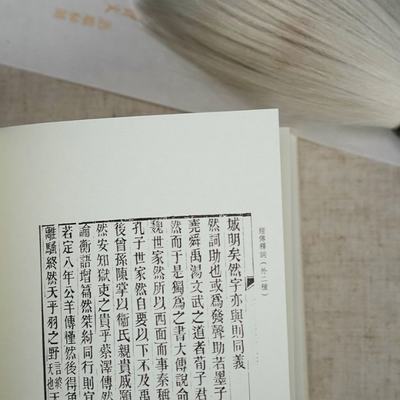 經傳釋詞（外二種）
城明矣然字亦與則同義
然詞助也或爲發聲助若墨子
堯舜禹湯文武之道者荀子君
然而于是獨爲之書大傳說命
魏世家然所以西面而事秦稱
孔子世家然自要以下不及禹
後曾孫陳掌以衞氏親貴戚願
然安知獄吏之貴乎蔡澤傳然
論衡語增篇然桀紂同行則宜
若定八年公羊傳憖然後得免
離騷終然夭乎羽之野